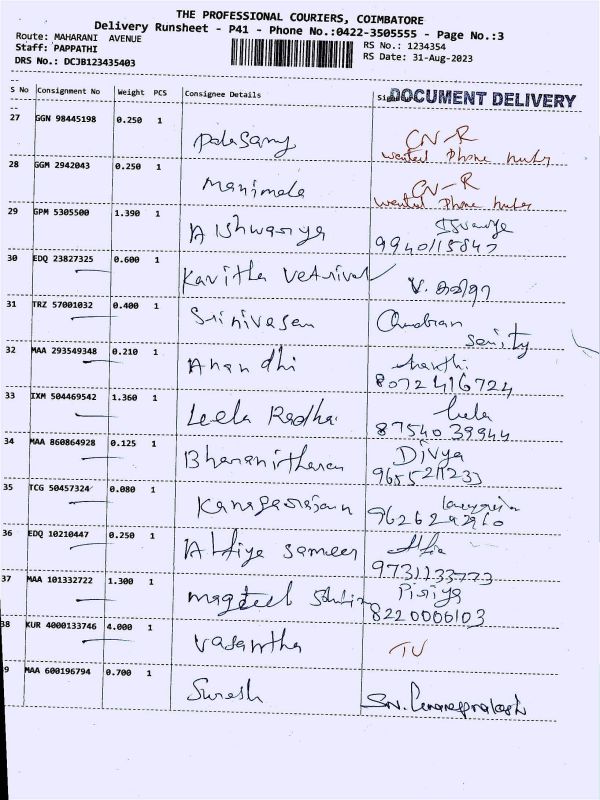 THE PROFESSIONAL COURIERS, COIMBATORE
Delivery Runsheet - P41 - Phone No.:0422-3505555 - Page No.:3
Route: MAHARANI AVENUE
RS No.: 1234354
Staff: PAPPATHI
RS Date: 31-Aug-2023
DRS No.: DCJB123435403
S No Consignment No Weight PCS Consignee Details DOCUMENT DELIVERY
27 GGN 98445198 0.250 1 CN-R
wented Phone
28 GGM 2942043 0.250 1 Manimala CN-R
wented Phone
29 GPM 5305500 1.390 1 Aishwarya
30 EDQ 23827325 0.600 1 Kavitha Vetrivel V.
31 TRZ 57001032 0.400 1 Srinivasan Chandran
32 MAA 293549348 0.210 1 Anandhi
8072416724
33 IXM 504469542 1.360 1 Leela Radha Leela
87540 39944
34 MAA 860864928 0.125 1 Divya
35 TCG 50457324 0.080 1
36 EDQ 10210447 0.250 1 Sameer
9731133773
37 MAA 101332722 1.300 1
8220006103
38 KUR 4000133746 4.000 1 Vasantha
9 MAA 600196794 0.700 1 Suresh